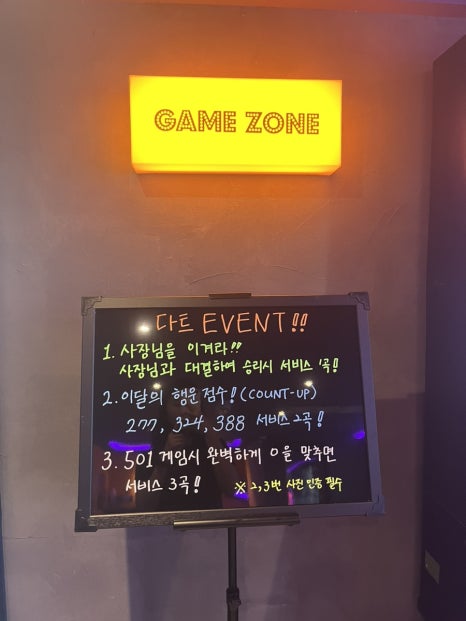 GAME ZONE
다트 EVENT!!
1. 사장님을 이겨라!!
사장님과 대결하여 승리시 서비스 1곡!
2. 이달의 행운점수! (COUNT-UP)
277, 324, 388 서비스 2곡!
3. 501 게임시 완벽하게 0을 맞추면
서비스 3곡!
※ 2,3번 사진 인증 필수